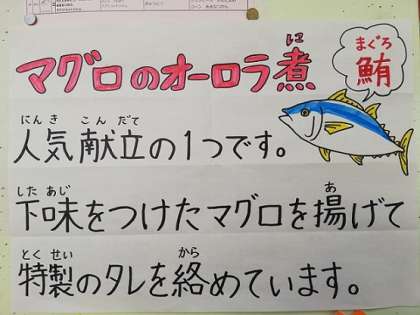 マグロのオーロラ煮
に
まぐろ
鮪
にんき こんだて
人気献立の1つです。
したあじ あ
下味をつけたマグロを揚げて
とくせい から
特製のタレを絡めています。